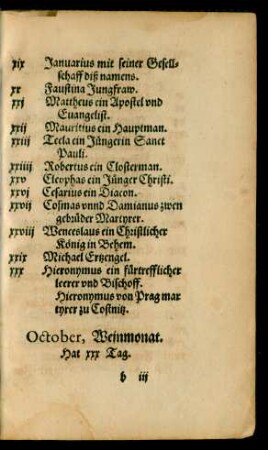 xix Januarius mit seiner Gesell-
schafft diß namens.
xx Faustina Jungfraw.
xxj Mattheus ein Apostel vnd
Euangelist.
xxij Mauritius ein Hauptman.
xxiij Tecla ein Jüngerin Sanct
Pauli.
xxiiij Robertus ein Closterman.
xxv Cleophas ein Jünger Christi.
xxvj Cesarius ein Diacon.
xxvij Cosmas vnnd Damianus zwen
gebrüder Martyrer.
xxviij Wenceslaus ein Christlicher
König in Behem.
xxix Michael Ertzengel.
xxx Hieronymus ein fürtrefflicher
leerer vnd Bischoff.
Hieronymus von Prag mar
tyrer zu Costnitz.
October, Weinmonat.
Hat xxx Tag.
b iij